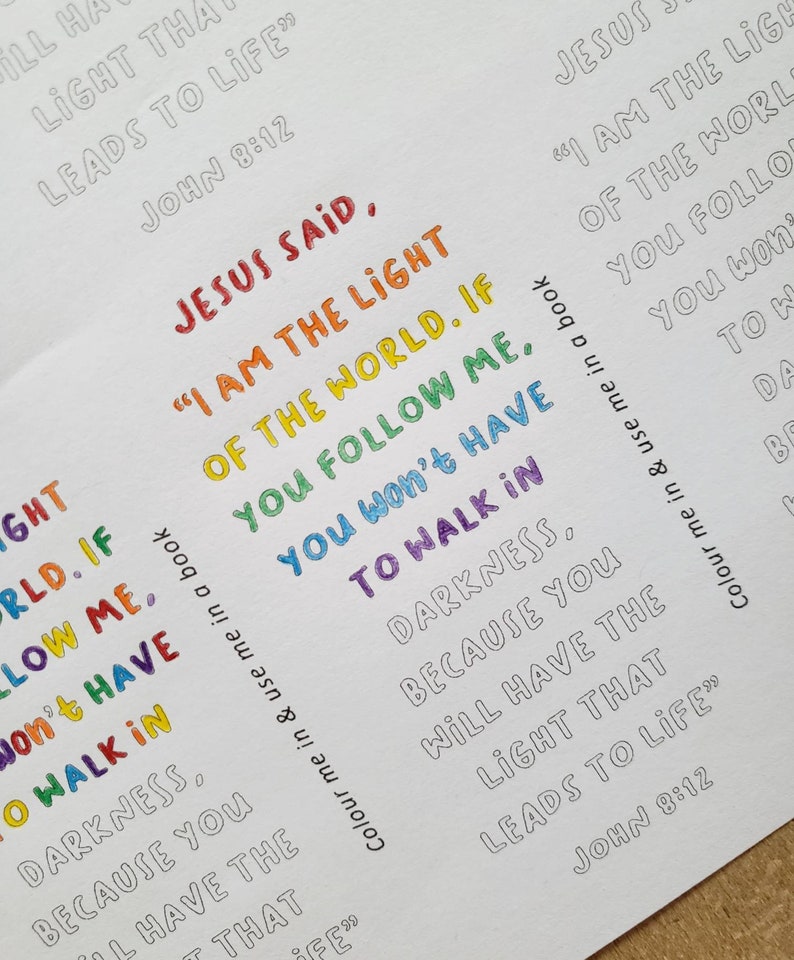 WILL HAVE
LiGHT THAT
LEADS TO LiFE”
JOHN 8:12
JESUS SAiD,
“I AM THE LiGHT
OF THE WORLD. IF
YOU FOLLOW ME,
YOU WON't HAVE
TO WALK iN
DARKNESS,
BECAUSE YOU
WiLL HAVE THE
LiGHT THAT
LEADS TO LiFE”
JOHN 8:12
Colour me in & use me in a book
JESUS
“I AM THE LIGH
OF THE WORL
YOU FOLLO
YOU WON'
TO W
DA
BE
IGHT
ORLD. IF
LLOW ME,
WON't HAVE
TO WALK iN
DARKNESS,
BECAUSE YOU
LL HAVE THE
T THAT
iFE”
Colour me in & use me in a book